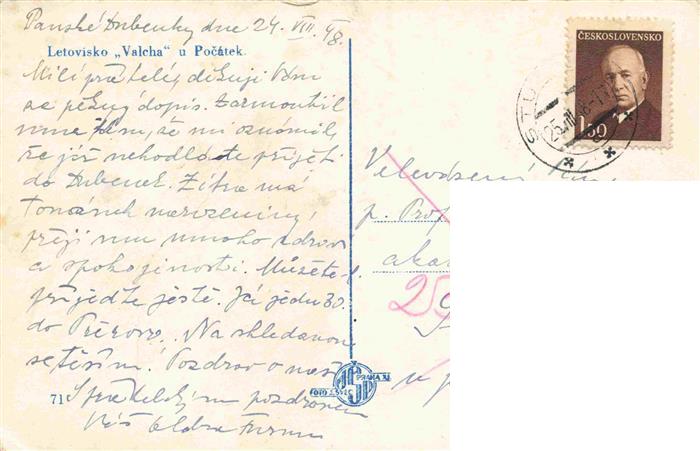 Panské Dubenky dne 24. VIII. 48.
Letovisko „Valcha" u Počátek.
Milí přátelé, děkuji Vám
za pěkný dopis. Zarmoutil
mne tím, že mi oznámil,
že již nehodláte přijeti
do Dubenek. Zítra má
Tomášek narozeniny,
přeji mu mnoho zdraví
a spokojenosti. Můžete-l.
přijeďte ještě. Já jedu 30.
do Přerova. Na shledanou
se těším. Pozdrav o
S přátelským pozdravem
Váš
71
FOTO
PRAHA XI
ČESKOSLOVENSKO
1.50
STU
25.VIII
Velevážený
p. Prof
aka
25
u p